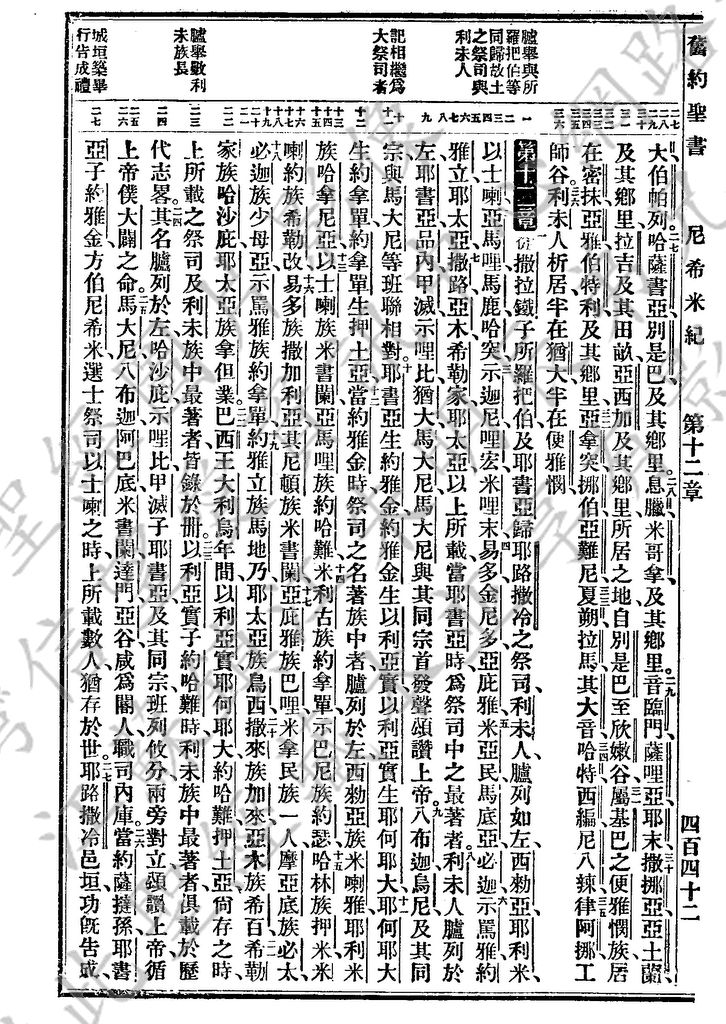 舊約聖書 尼希米紀 第十二章 四百四十二
大伯帕列哈薩書亞別是巴及其鄉里息臘米哥拿及其鄉里音臨門薩哩亞耶末撒挪亞亞土蘭
及其鄉里拉吉及其田畝亞西加及其鄉里所居之地自別是巴至欣嫩谷屬基巴之便雅憫族居
在密抹亞雅伯特利及其鄉里亞拿突挪伯亞難尼夏朔拉馬其大音哈特西編尼八辣律阿挪工
師谷利未人析居半在猶大半在便雅憫
第十二章 偕撒拉鐵子所羅把伯及耶書亞歸耶路撒冷之祭司利未人臚列如左西勑亞耶利米
以士喇亞馬哩馬鹿哈突示迦尼哩宏米哩末易多金尼多亞庇雅米亞民馬底亞必迦示罵雅約
雅立耶太亞撒路亞木希勒家耶太亞以上所載當耶書亞時爲祭司中之最著者利未人臚列於
左耶書亞品內甲滅示哩比猶大馬大尼馬大尼與其同宗首發聲頌讚上帝八布迦烏尼及其同
宗與馬大尼等班聯相對耶書亞生約雅金約雅金生以利亞實以利亞實生耶何耶大耶何耶大
生約拿單約拿單生押土亞當約雅金時祭司之名著族中者臚列於左西勑亞族米喇雅耶利米
族哈拿尼亞以士喇族米書蘭亞馬哩族約哈難米利古族約拿單示巴尼族約瑟哈林族押米米
喇約族希勒改易多族撒加利亞其尼頓族米書蘭亞庇雅族巴哩米拿民族一人摩亞底族必太
必迦族少母亞示罵雅族約拿單約雅立族馬地乃耶太亞族烏西撒來族加來亞木族希百希勒
家族哈沙庇耶太亞族拿但業巴西王大利烏年間以利亞實耶何耶大約哈難押土亞尙存之時
上所載之祭司及利未族中最著者皆錄於冊以利亞實子約哈難時利未族中最著者俱載於歷
代志畧其名臚列於左哈沙庇示哩比甲滅子耶書亞及其同宗班列攸分兩旁對立頌讚上帝循
上帝僕大闢之命馬大尼八布迦阿巴底米書蘭達門亞谷咸爲閽人職司內庫當約薩撻孫耶書
亞子約雅金方伯尼希米選士祭司以士喇之時上所載數人猶存於世耶路撒冷邑垣功旣告成
臚舉與所
羅把伯等
同歸故土
之祭司與
利未人
記相繼爲
大祭司者
臚舉數利
未族長
城垣築畢
行告成禮